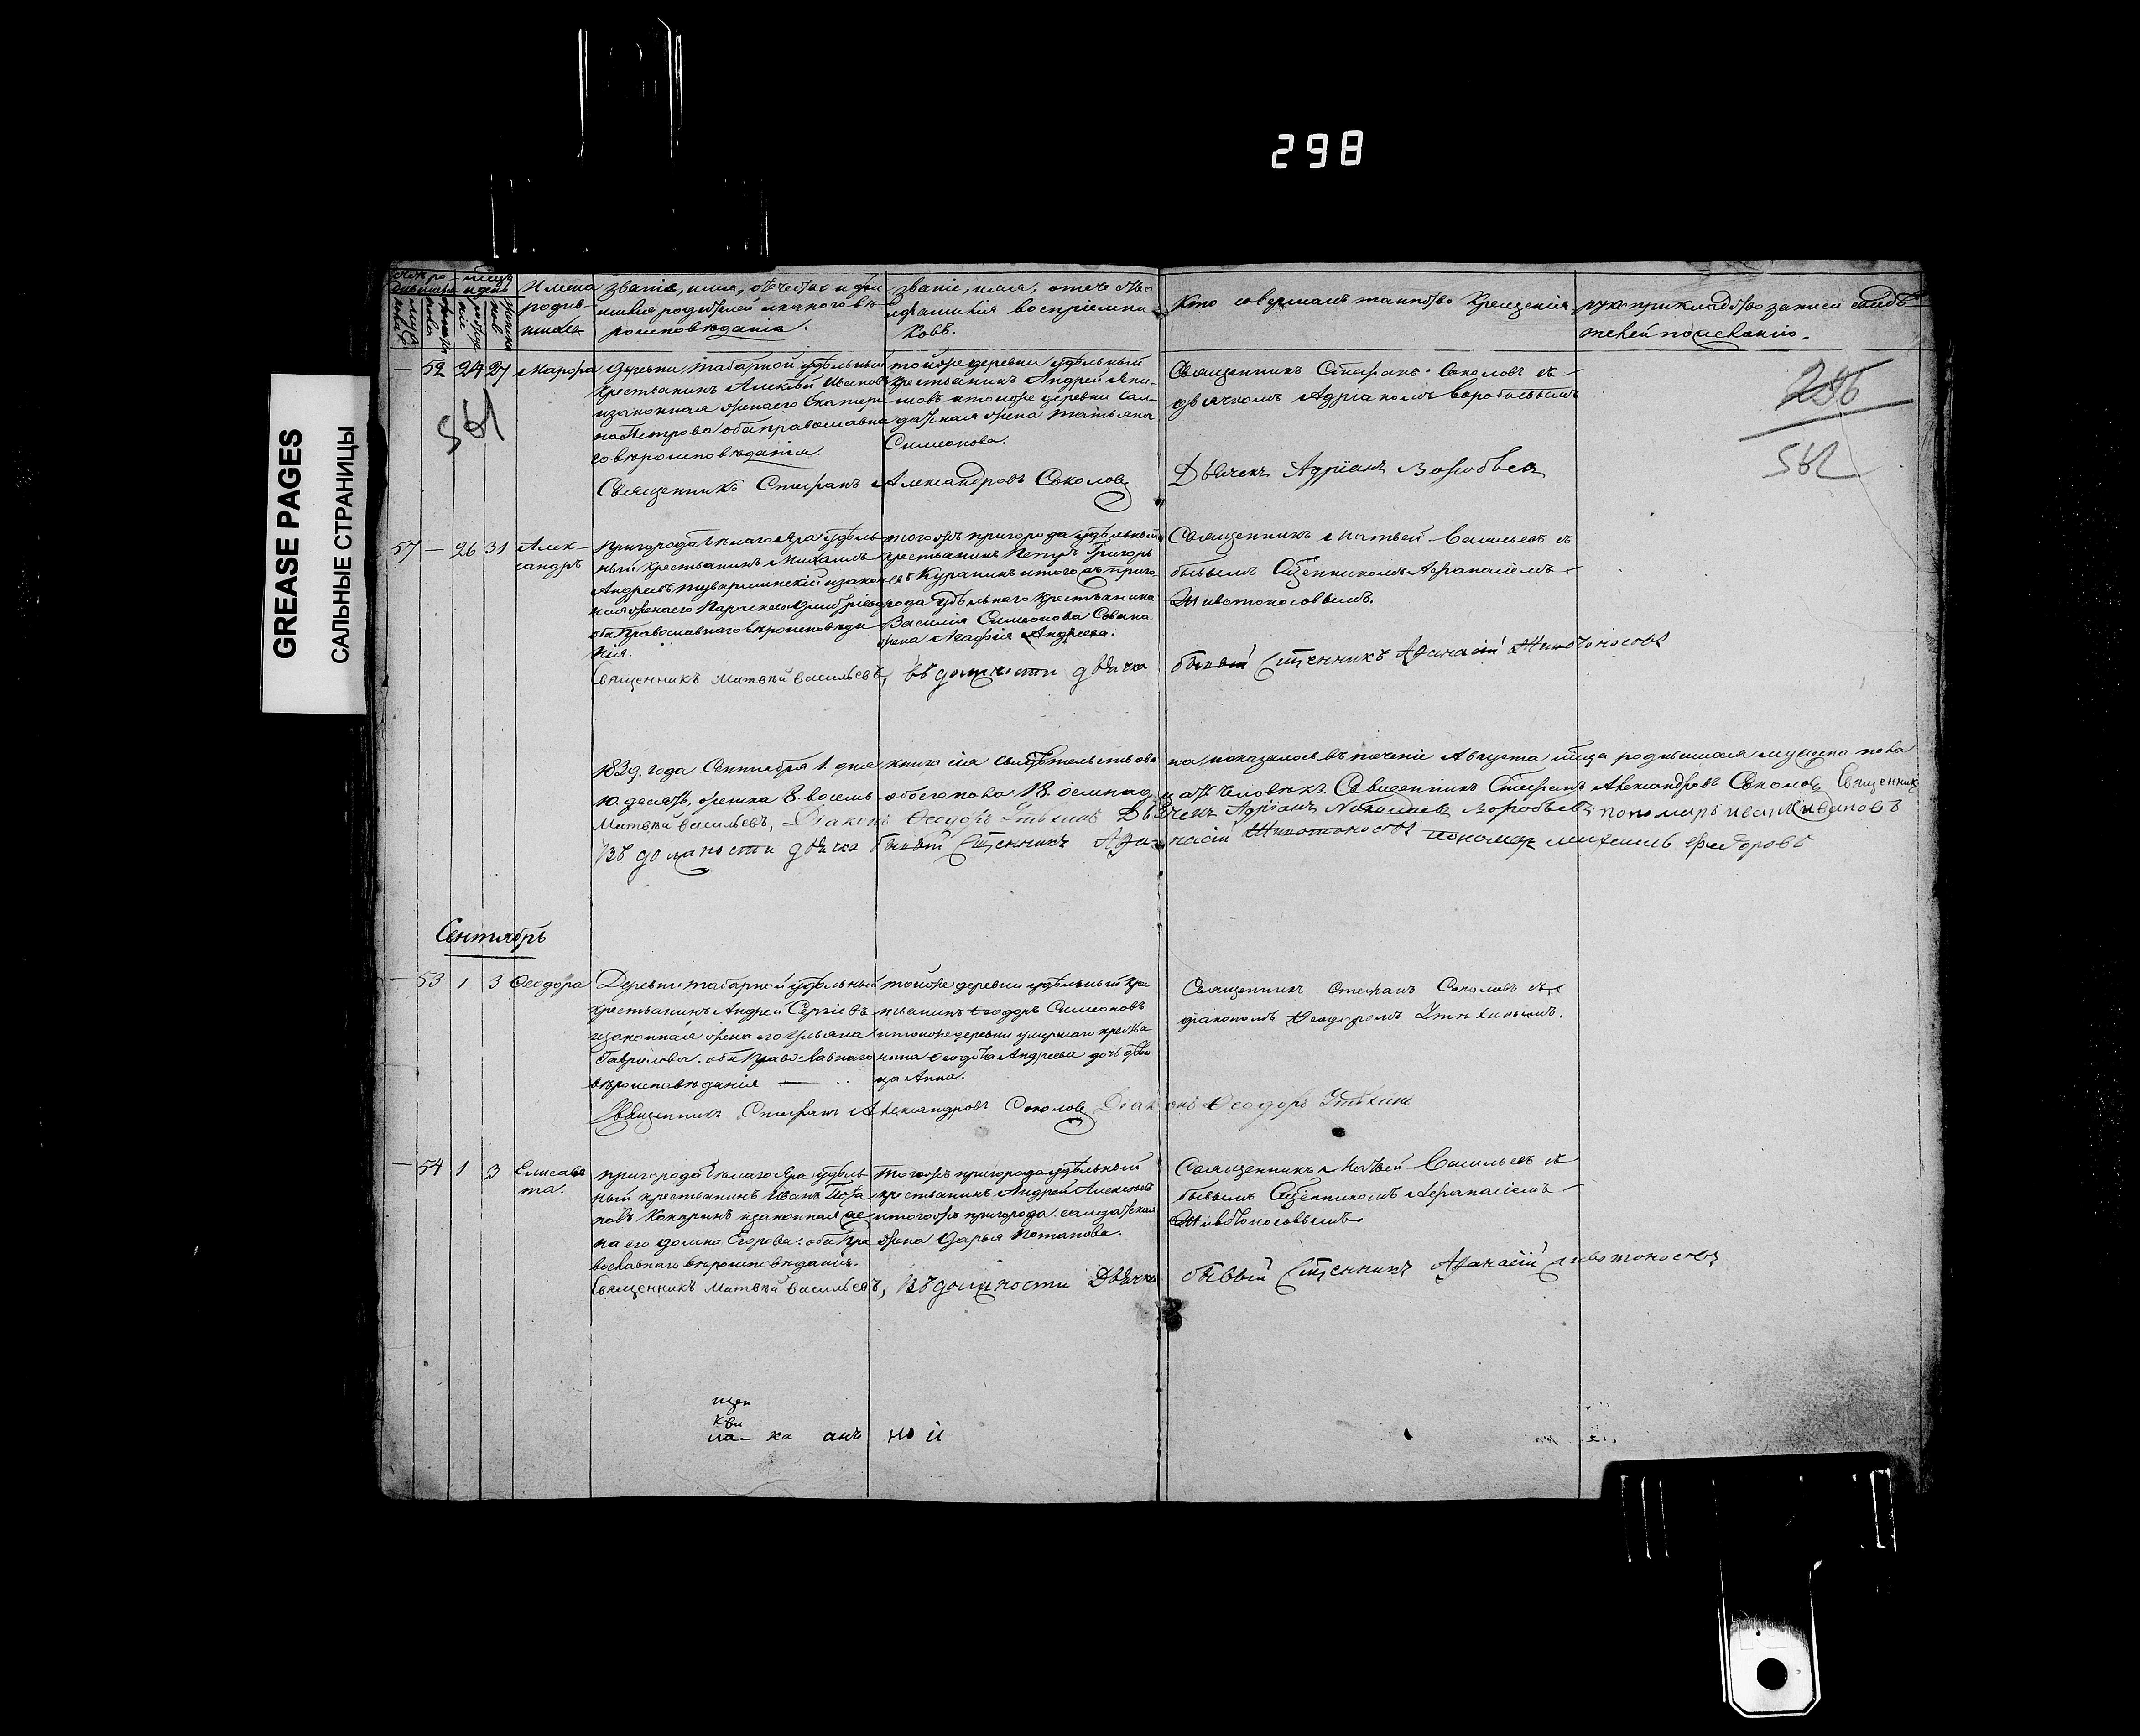 298
GREASE PAGES
САЛЬНЫЕ СТРАНИЦЫ
Имена родив-
шихся
званіе, имя, отчество и фами
лія родителей и какого вѣ
роисповѣданія.
званіе, имя, отечество
и фамилія воспріемни
ковъ.
Кто совершалъ таинство Крещенія
рукоприкладство записи свидѣ
телей по желанію.
256
562
561
— 52 24 27
деревни табарной удѣльный
крестьянинъ Алексѣй Ивановъ
и законная жена его Екатери
на Петрова оба православна
го вѣроисповѣданія.
той же деревни удѣльный
крестьянинъ Андрей
и той же деревни сол-
датская жена Татьяна
Симеонова.
Священникъ Стефанъ Соколовъ съ
дьячкомъ Адріаномъ Воробьевымъ
Священникъ Стефанъ Александровъ Соколовъ
Дьячекъ Адріанъ Воробьев
57 — 26 31 Алек-
сандръ
пригорода Бѣлаго Яра удѣль
ный крестьянинъ Михаилъ
Андреевъ и закон
ная жена его
оба православнаго вѣроисповѣда
нія.
того жъ пригорода удѣльный
крестьянинъ Петръ Григорь
евъ Курапинъ и того жъ приго-
рода удѣльнаго крестьянина
Василія Симеонова Савина
жена Агафія Андреева.
Священникъ Матвей Васильевъ съ
бывшимъ Сщенникомъ Афанасіемъ
Животоносовымъ.
Священникъ Матвѣй Васильевъ, въ должности дьячка бывый Сщенникъ Афанасій Животоносовъ
1839. года Сентября 1. дня книга сія свидѣтельствова на, показалось въ теченіе Августа мѣца родившихся мужеска пола
10. десять, женска 8. восемь обоего пола 18. осемнадцать человѣкъ. Священникъ Стефанъ Александровъ Соколовъ Священникъ
Матвѣй Васильевъ, Діаконъ Ѳеодоръ Утѣхинъ Дьячекъ Адріанъ Николаевъ Воробьевъ пономарь иванъ ивановъ
Въ должности дьячка бывый Сщенникъ Афанасій Животоносовъ пономарь михаилъ федоровъ
Сентябрь
— 53 1 3 Ѳеодора
Деревни табарной удѣльный
крестьянинъ Андрей Сергѣевъ
и законная жена его Ульяна
Гаврилова. оба Православнаго
вѣроисповѣданія —
той же деревни удѣльный кре
стьянинъ Ѳеодоръ Симеоновъ
и той же деревни умершаго крестья
нина Андреева дочь дѣви
ца Анна.
Священникъ Стефанъ Соколовъ съ
діакономъ Ѳеодоромъ Утѣхинымъ.
Священникъ Стефанъ Александровъ Соколовъ Діаконъ Ѳеодоръ Утѣхинъ
— 54 1 3 Елисаве
та.
пригорода Бѣлаго Яра удѣль
ный крестьянинъ Иванъ
Кокаринъ и законная же
на его домна Егорова. оба Пра
вославнаго вѣроисповѣданія.
того жъ пригорода удѣльный
крестьянинъ Андрей Алексѣевъ
и того жъ пригорода солдатская
жена Дарья Потапова.
Священникъ Матвей Васильевъ съ
бывшимъ Сщенникомъ Афанасіемъ
Животоносовымъ
Священникъ Матвѣй Васильевъ, Въ должности Дьячка бывый Сщенникъ Афанасій Животоносовъ